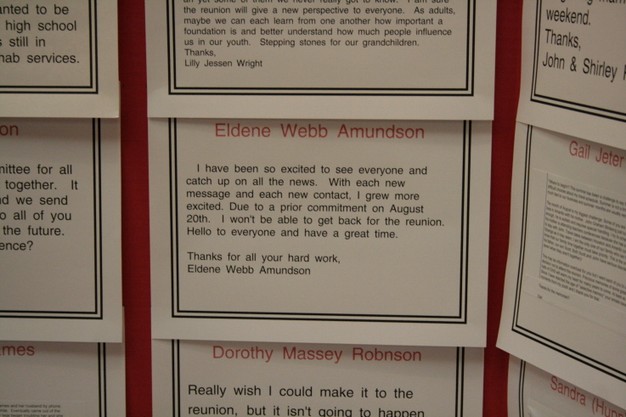 anted to be
high school
still in
hab services.
the reunion will give a new perspective to everyone. As adults,
maybe we can each learn from one another how important a
foundation is and better understand how much people influence
us in our youth. Stepping stones for our grandchildren.
Thanks,
Lilly Jessen Wright
weekend.
Thanks,
John & Shirley
on
mittee for all
together. It
nd we send
o all of you
the future.
ence?
Eldene Webb Amundson
I have been so excited to see everyone and
catch up on all the news. With each new
message and each new contact, I grew more
excited. Due to a prior commitment on August
20th. I won't be able to get back for the reunion.
Hello to everyone and have a great time.
Thanks for all your hard work,
Eldene Webb Amundson
Gail Jeter
ames
Dorothy Massey Robnson
Really wish I could make it to the
reunion, but it isn't going to happen
Sandra (Hum